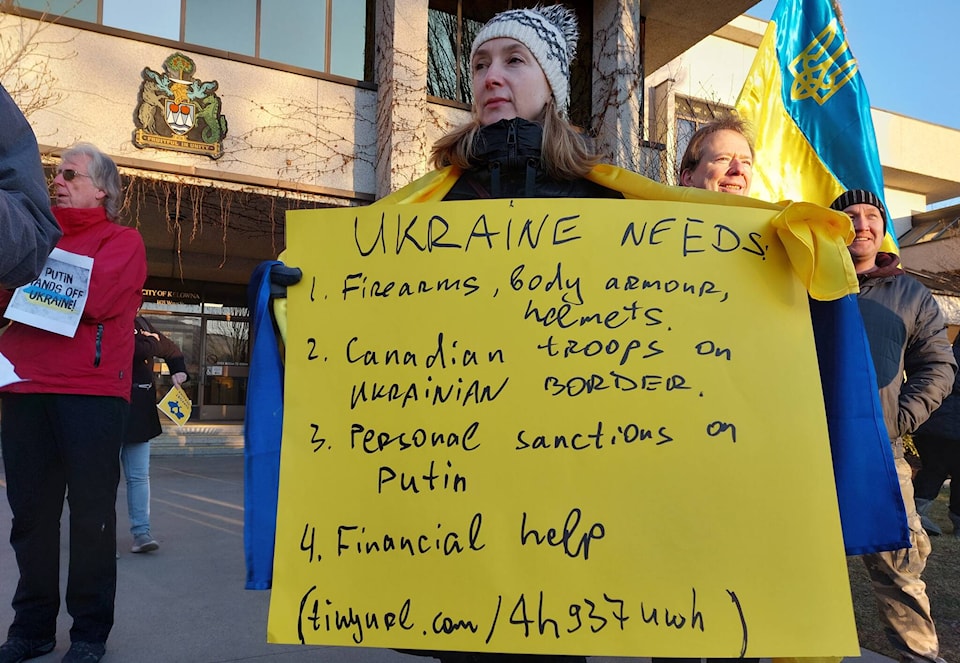 FRUITFUL IN UNITY
CITY OF KELOWNA
PUTIN
HANDS OFF
UKRAINE!
UKRAINE NEEDS:
1. Firearms, body armour,
helmets.
2. Canadian troops on
UKRAINIAN BORDER.
3. Personal sanctions on
Putin
4. Financial help
(tinyurl.com/4h937uwh)